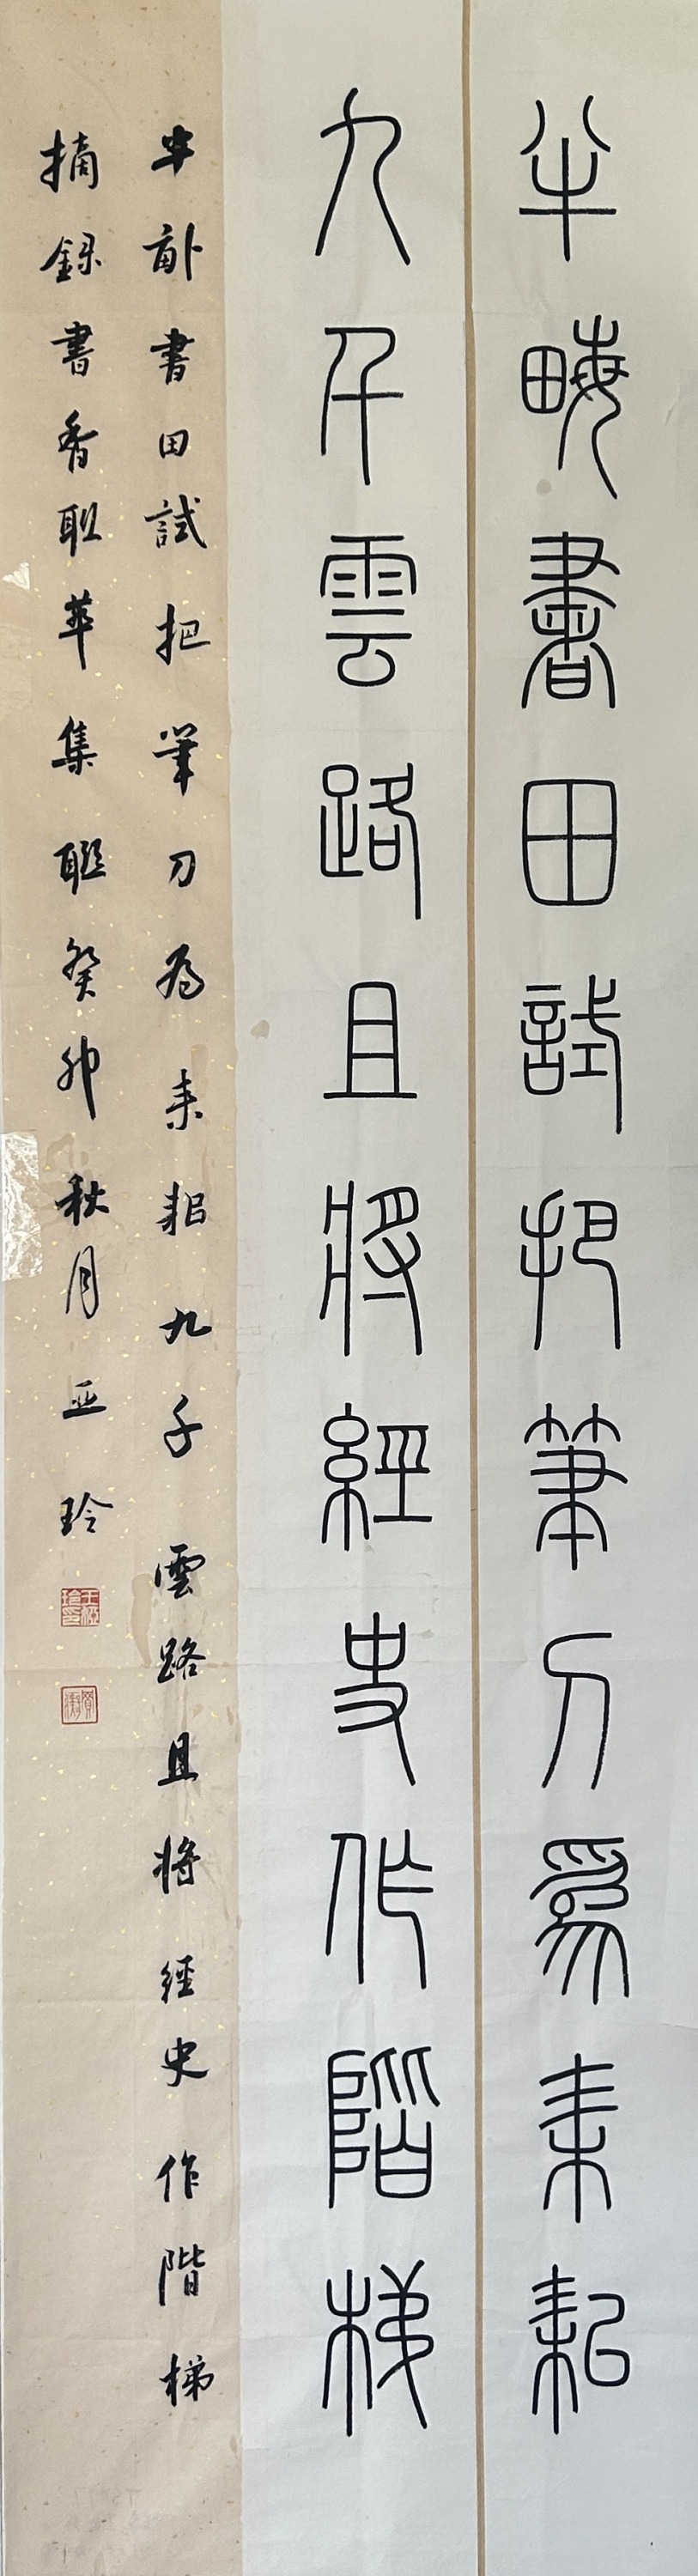 半畮書田試把筆刀爲耒耜
九千雲路且將經史作階梯
半畝書田試把筆刀為耒耜九千雲路且將經史作階梯
摘錄書香联萃集聯癸卯秋月亚玲